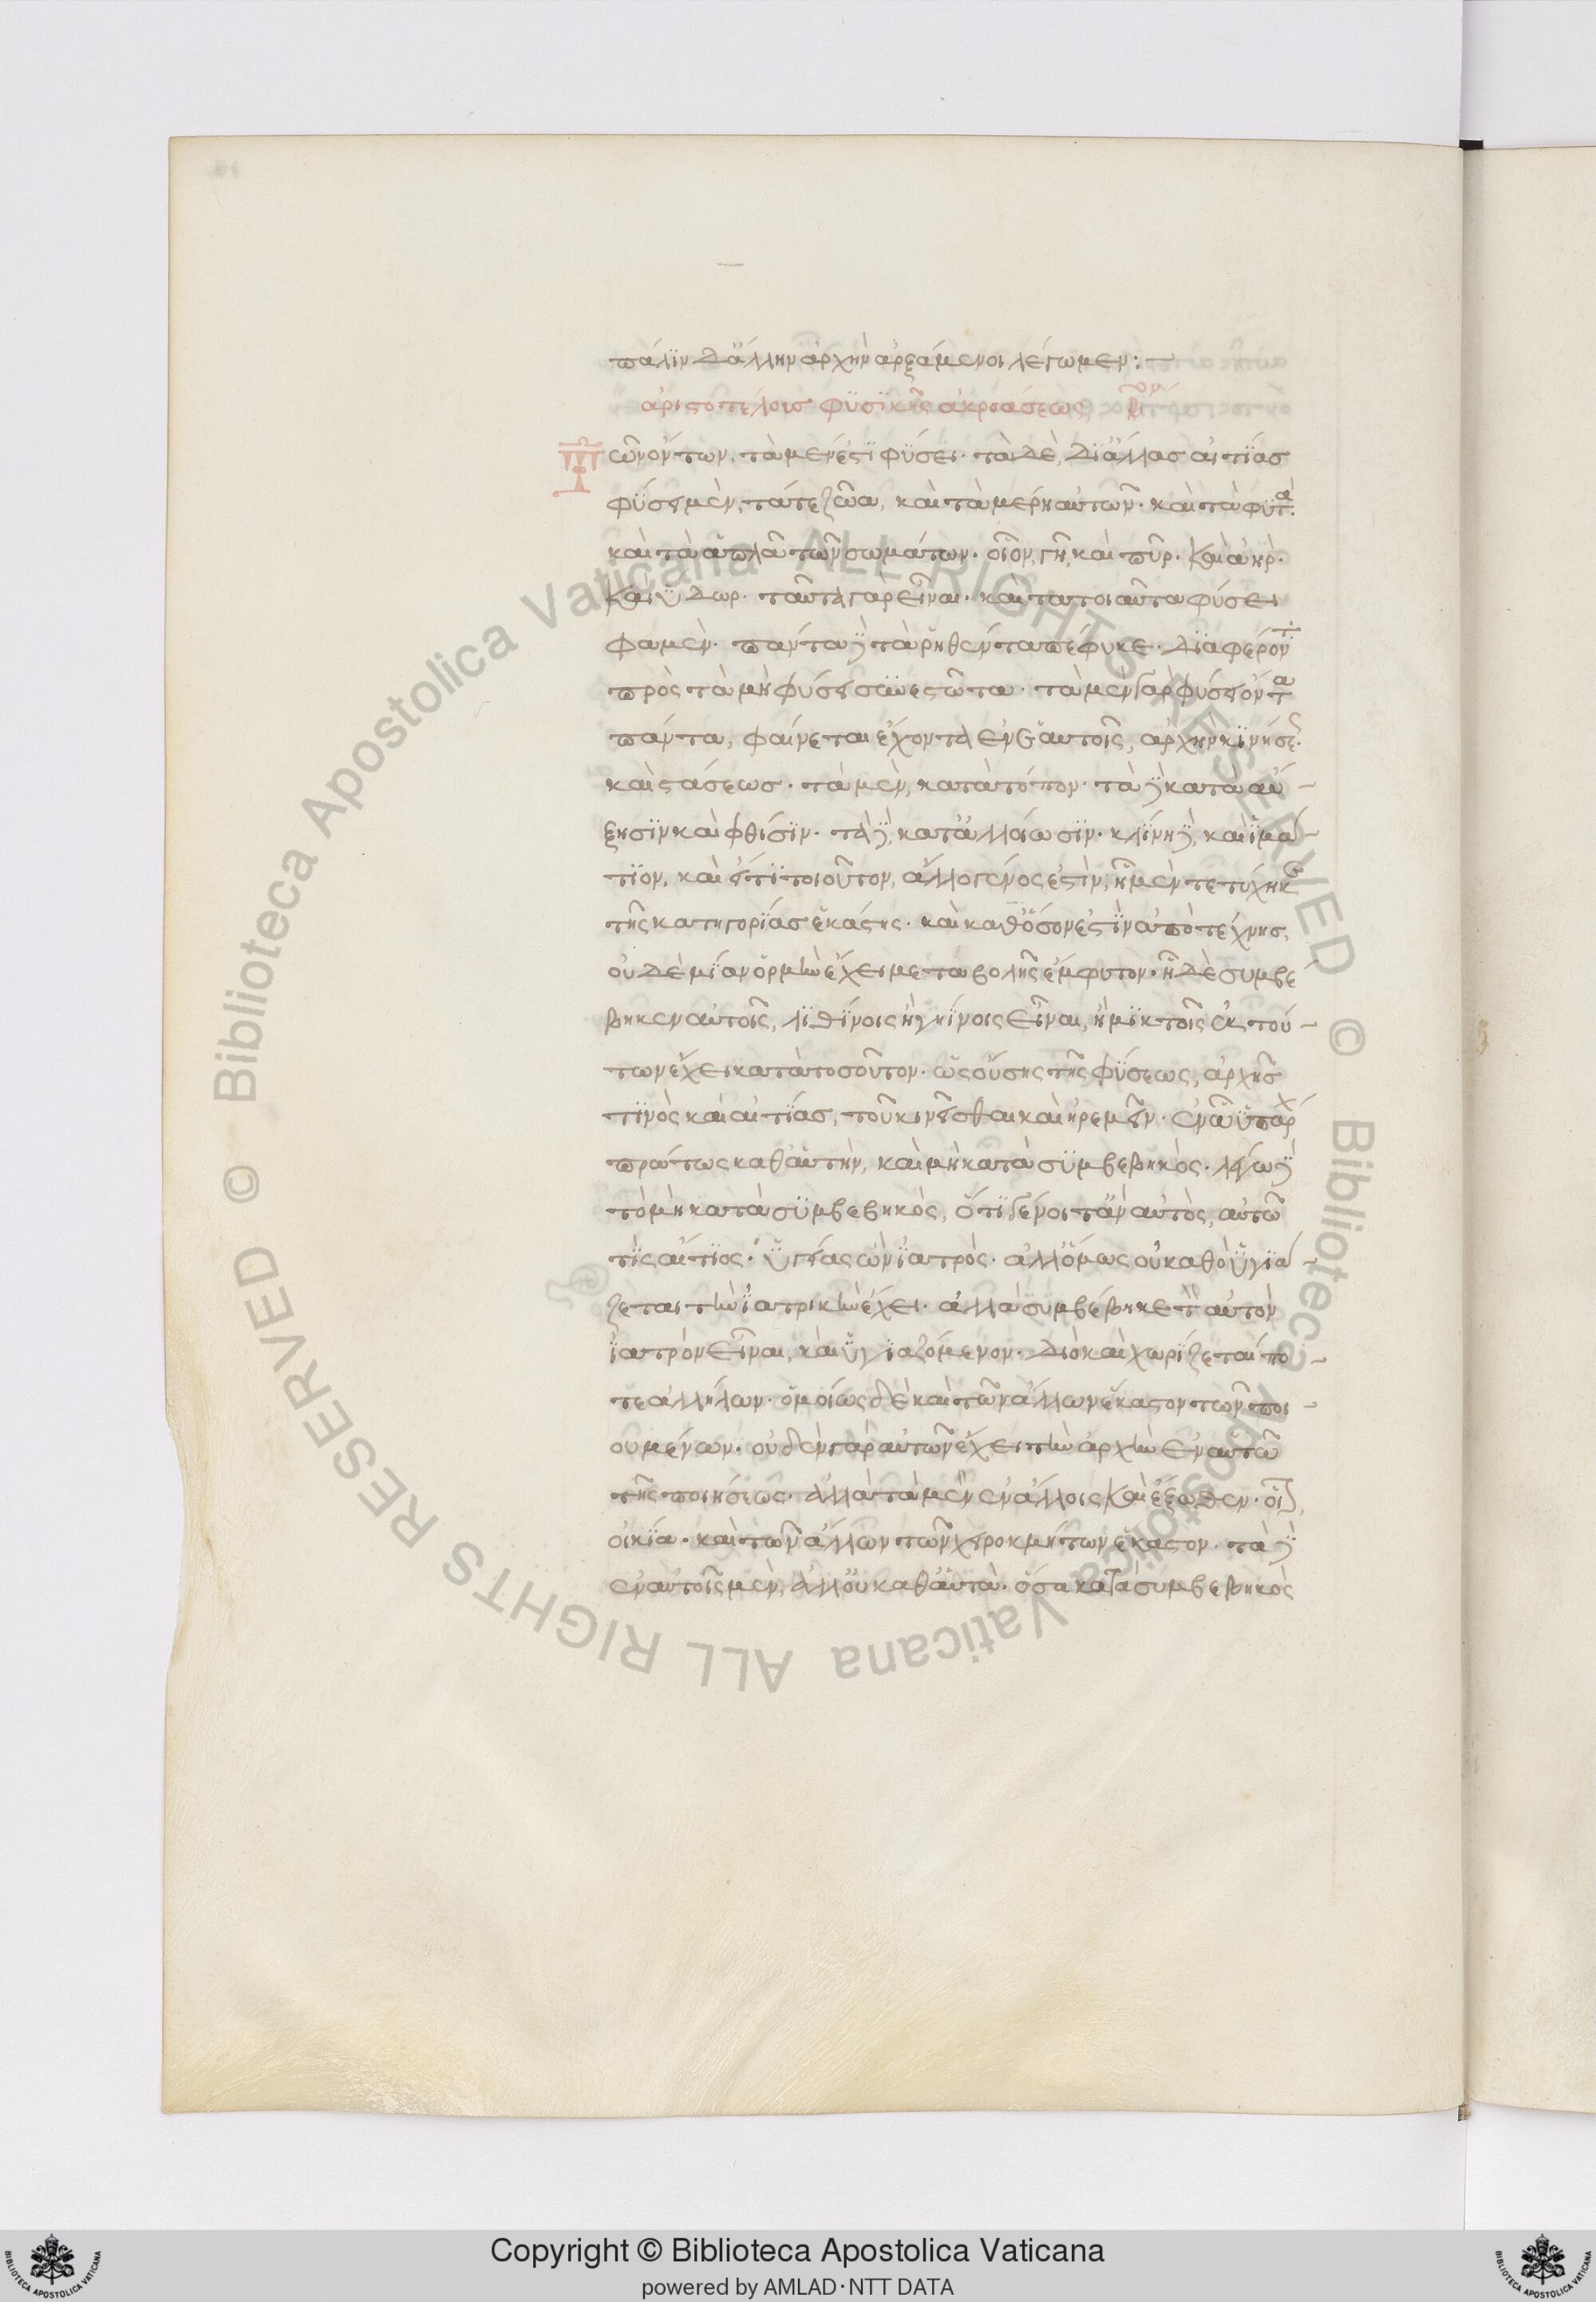 πάλϊν δ' ἄλλην ἀρχὴν ἀρξάμενοι λέγωμεν:
ἀριστοτέλους φϋσϊκῆς ἀκροάσεως
Τῶν ὄντων, τὰ μέν ἐστϊ φύσει· τὰ δὲ, δϊ' ἄλλας αἰτίας
φύσει μὲν, τά τε ζῶα, καὶ τὰ μέρη αὐτῶν· καὶ τὰ φυτά·
καὶ τὰ ἁπλᾶ τῶν σωμάτων· οἷον, γῆ, καὶ πῦρ· καὶ ἀήρ·
καὶ ὕδωρ· ταῦτα γὰρ εἶναι· καὶ τα τοιαῦτα φύσει
φαμὲν· πάντα δὲ τὰ ῥηθέντα πέφυκε· δϊαφέροντϊ
πρὸς τὰ μὴ φύσει συνεστῶτα· τὰ μὲν γὰρ φύσει ὄντα
πάντα, φαίνεται ἔχοντα ἐν ἑαυτοῖς, ἀρχὴν κϊνήσεως·
καὶ στάσεως· τὰ μὲν, κατὰ τόπον· τὰ δὲ κατὰ αὔ-
ξησϊν καὶ φθίσϊν· τὰ δὲ, κατ' ἀλλοίωσϊν· κλΐνη δὲ, καὶ ἱμά-
τϊον, καὶ εἴ τϊ τοιοῦτον, ἄλλο γένος ἐστὶν, ᾗ μὲν τετύχηκε
τῆς κατηγορΐας ἑκάστης· καὶ καθ' ὅσον ἐστϊν ἀπὸ τέχνης,
οὐδὲ μΐαν ὁρμὴν ἔχει μεταβολῆς ἔμφυτον· ᾗ δὲ συμβέ
βηκεν αὐτοῖς, λϊθΐνοις ἢ γηΐνοις εἶναι, ἢ μϊκτοῖς ἐκ τού-
των ἔχει κατὰ τοσοῦτον· ὡς οὔσης τῆς φύσεως, ἀρχῆς
τϊνὸς καὶ αἰτίας, τοῦ κινεῖσθαι καὶ ἠρεμεῖν· ἐν ᾧ ὑπάρχ
πρώτως καθ' αὑτὴν, καὶ μὴ κατὰ συμβεβηκὸς· λέγω δὲ
τὸ μὴ κατὰ συμβεβηκὸς, ὅτϊ γένοιτ' ἂν αὐτὸς, αὑτῶ
τϊς αἴτϊος· ὑγείας ὢν ἰατρὸς· ἀλλ' ὅμως οὐ καθὸ ὑγϊά-
ζεται τὴν ἰατρικὴν ἔχει· ἀλλὰ συμβέβηκε τὸν αὐτὸν
ἰατρὸν εἶναι, καὶ ὑγϊαζόμενον· διὸ καὶ χωρίζεταί πο-
τε ἀλλήλων· ὁμοίως δὲ καὶ τῶν ἄλλων ἕκαστον τῶν ποι-
ουμένων· οὐδὲν γὰρ αὐτῶν ἔχει τὴν ἀρχὴν ἐν αὑτῶ
τῆς ποιήσεως· ἀλλὰ τὰ μὲν ἐν ἄλλοις καὶ ἔξωθεν· οἷον,
οἰκΐα· καὶ τῶν ἄλλων τῶν χειροκμήτων ἕκαστον· τὰ δὲ
ἐν αὐτοῖς μὲν, ἀλλ' οὐ καθ' αὑτὰ· ὅσα κατὰ συμβεβηκὸς
Copyright © Biblioteca Apostolica Vaticana
powered by AMLAD·NTT DATA